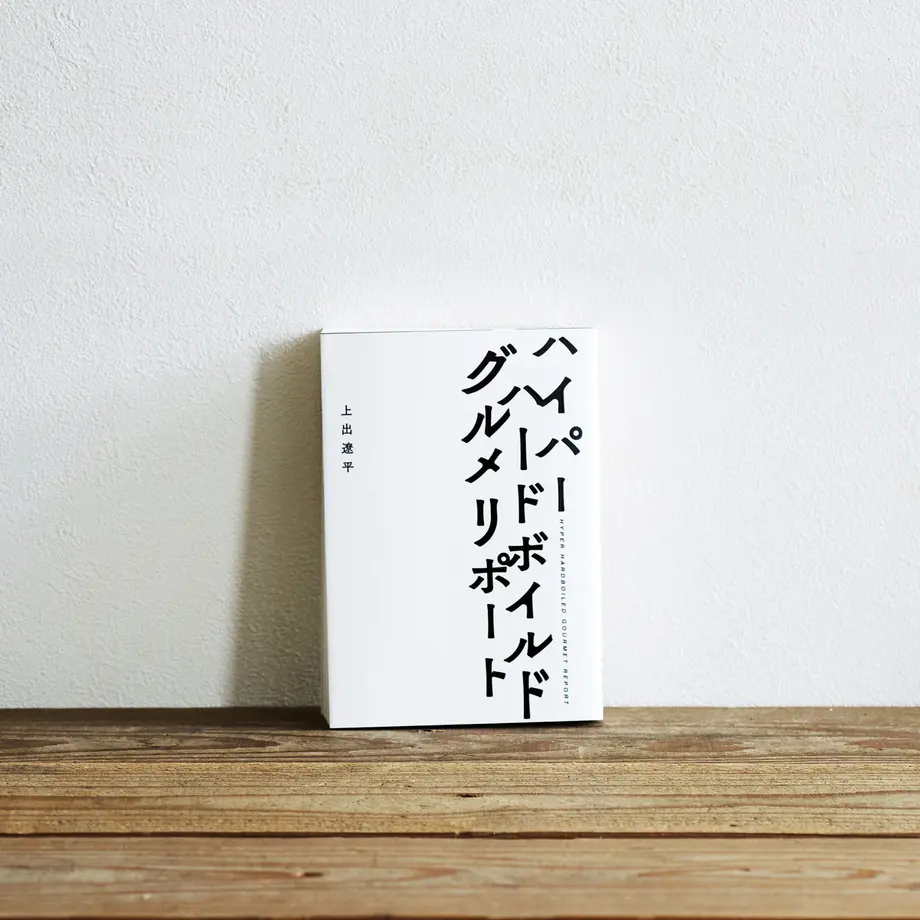 ハイパー
ハードボイルド
グルメリポート
HYPER HARDBOILED GOURMET REPORT
上出遼平